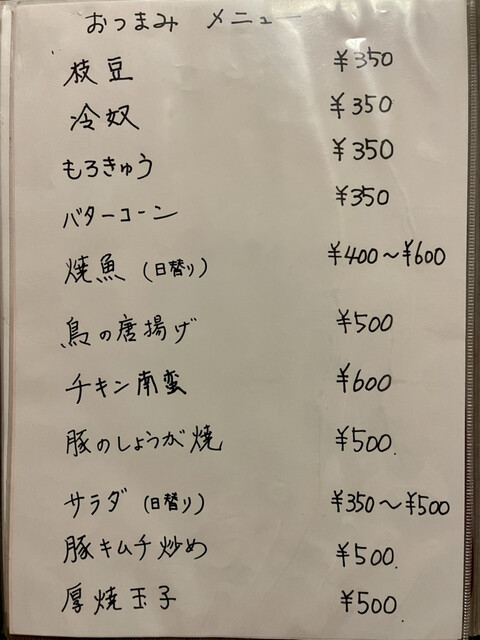 おつまみ メニュー
枝豆 ¥350
冷奴 ¥350
もろきゅう ¥350
バターコーン ¥350
焼魚 (日替り) ¥400～¥600
鳥の唐揚げ ¥500
チキン南蛮 ¥600
豚のしょうが焼 ¥500.
サラダ (日替り) ¥350～¥500
豚キムチ炒め ¥500.
厚焼玉子 ¥500